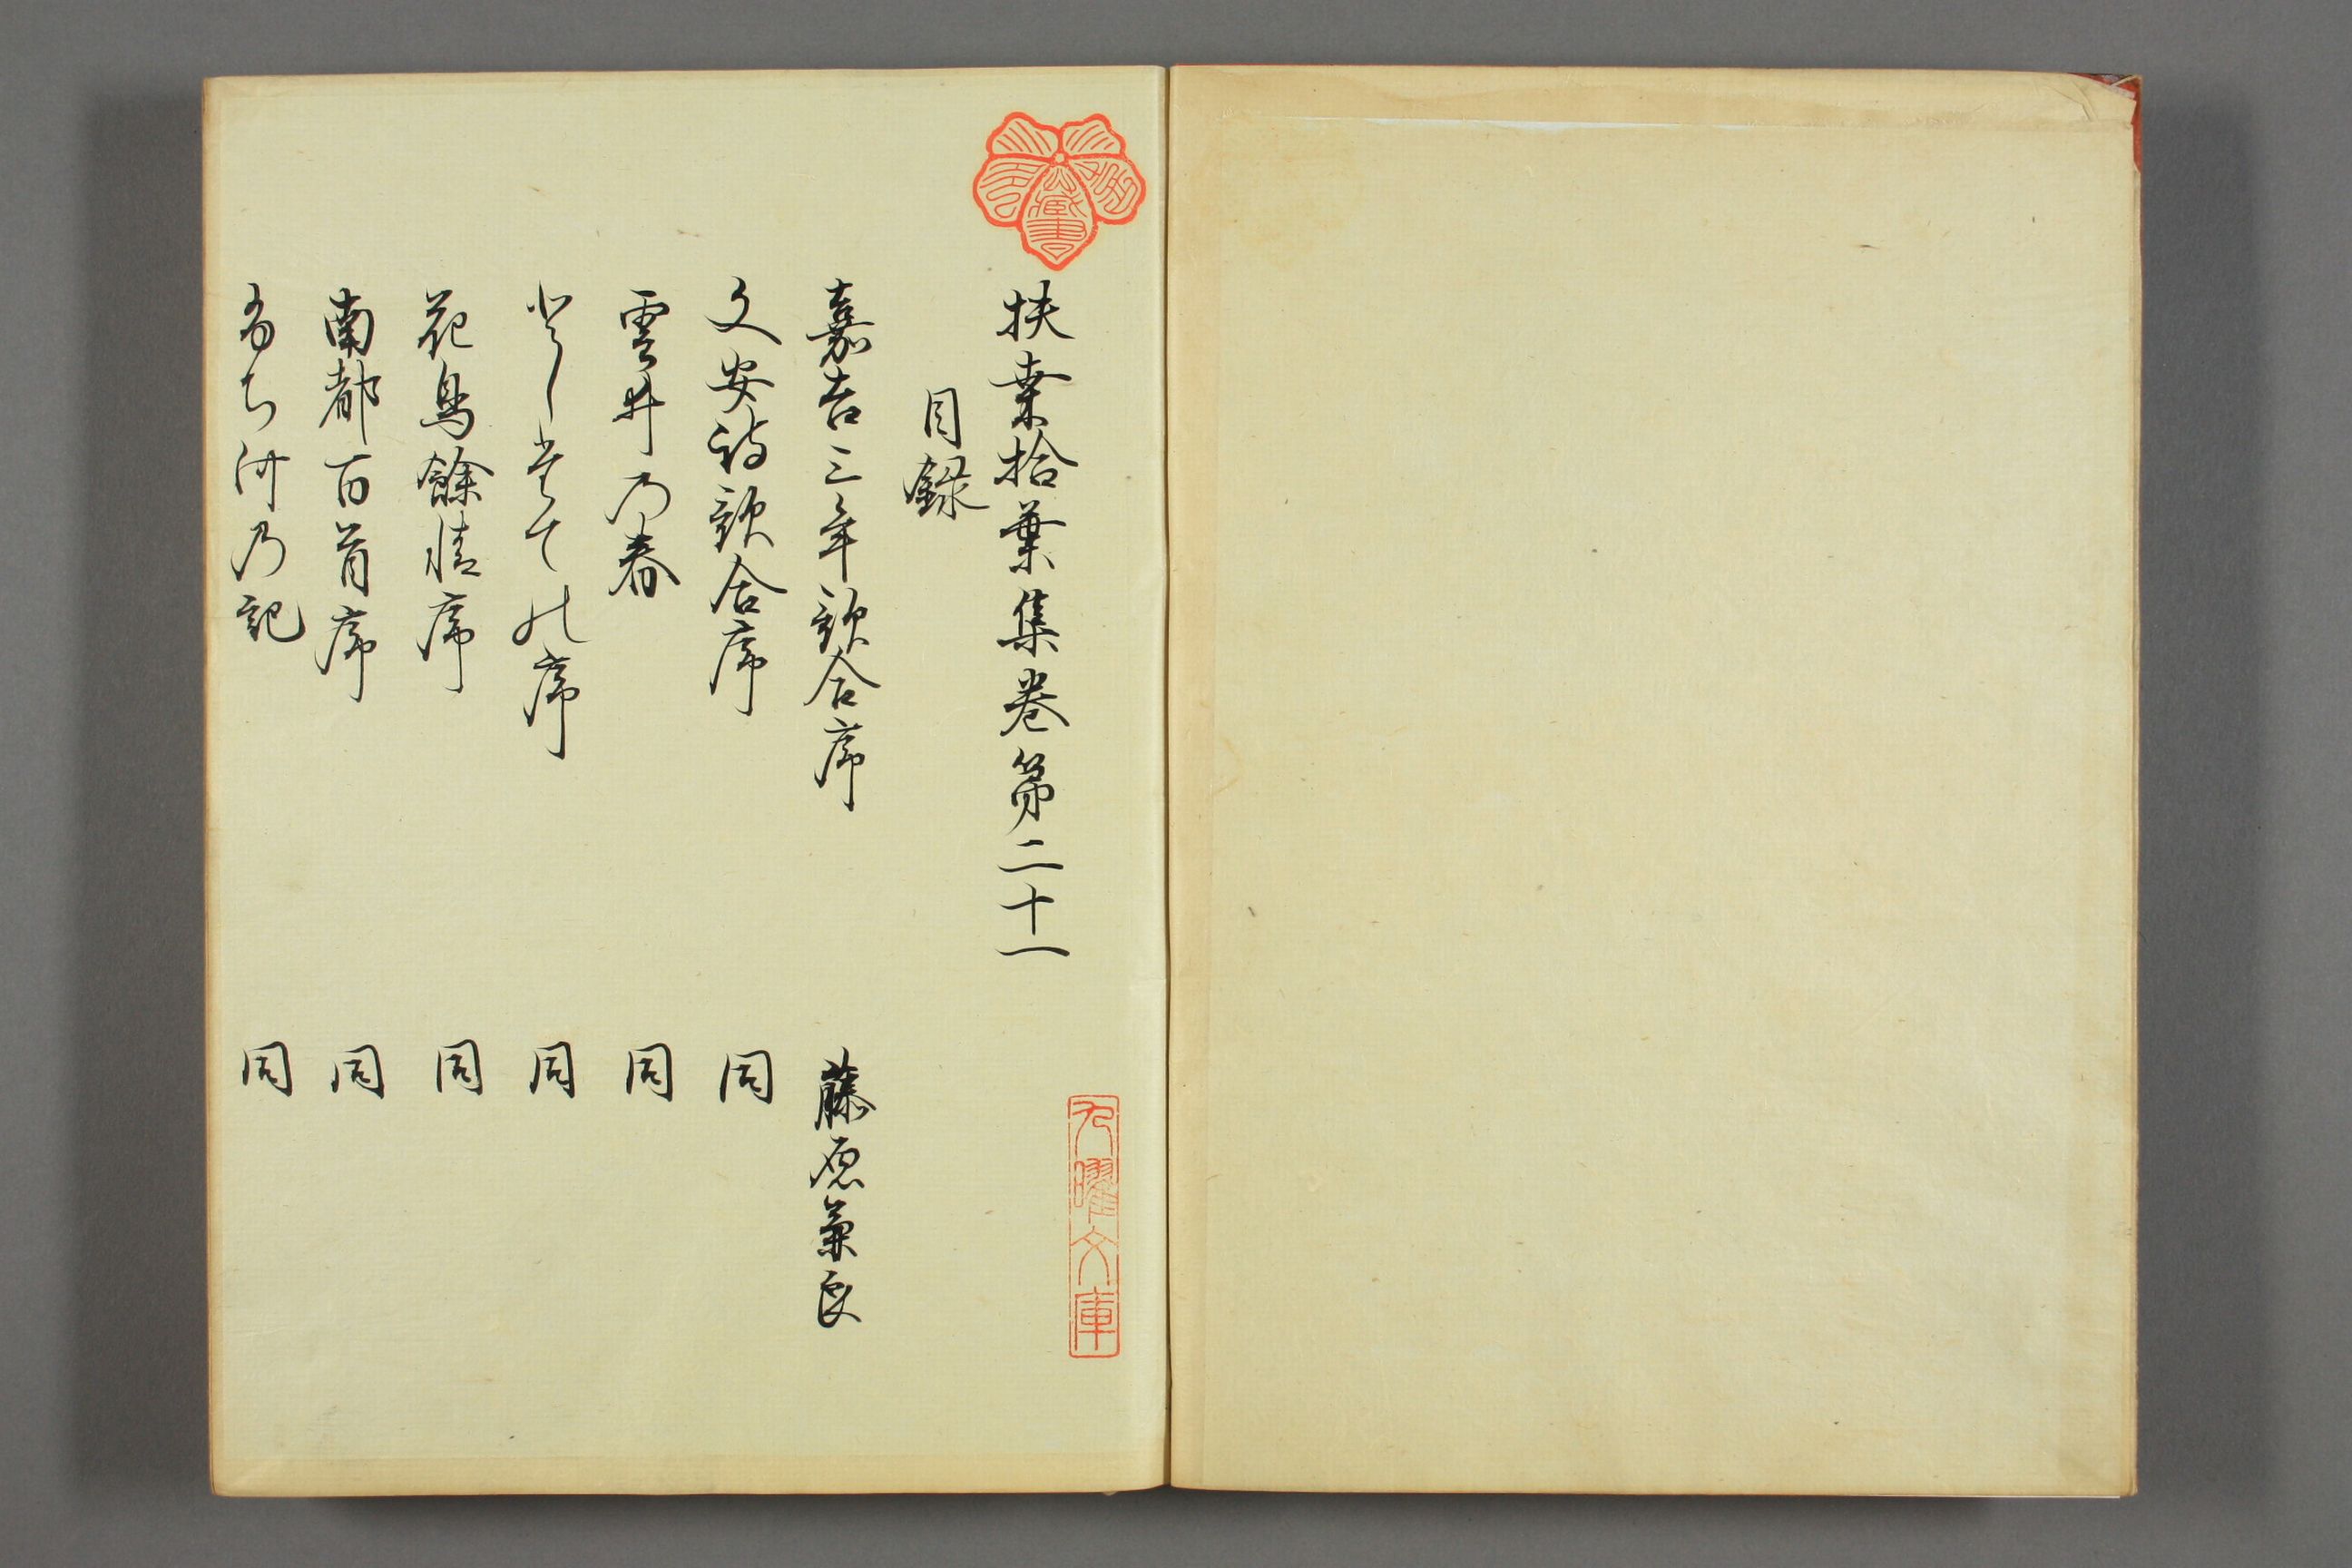 扶桑拾葉集巻第二十一
目録
嘉吉三年歌合序 藤原兼良
文安詩歌合序 同
雲井乃春 同
としたての序 同
花鳥餘情序 同
南都百首序 同
ふち河乃記 同
九曜文庫